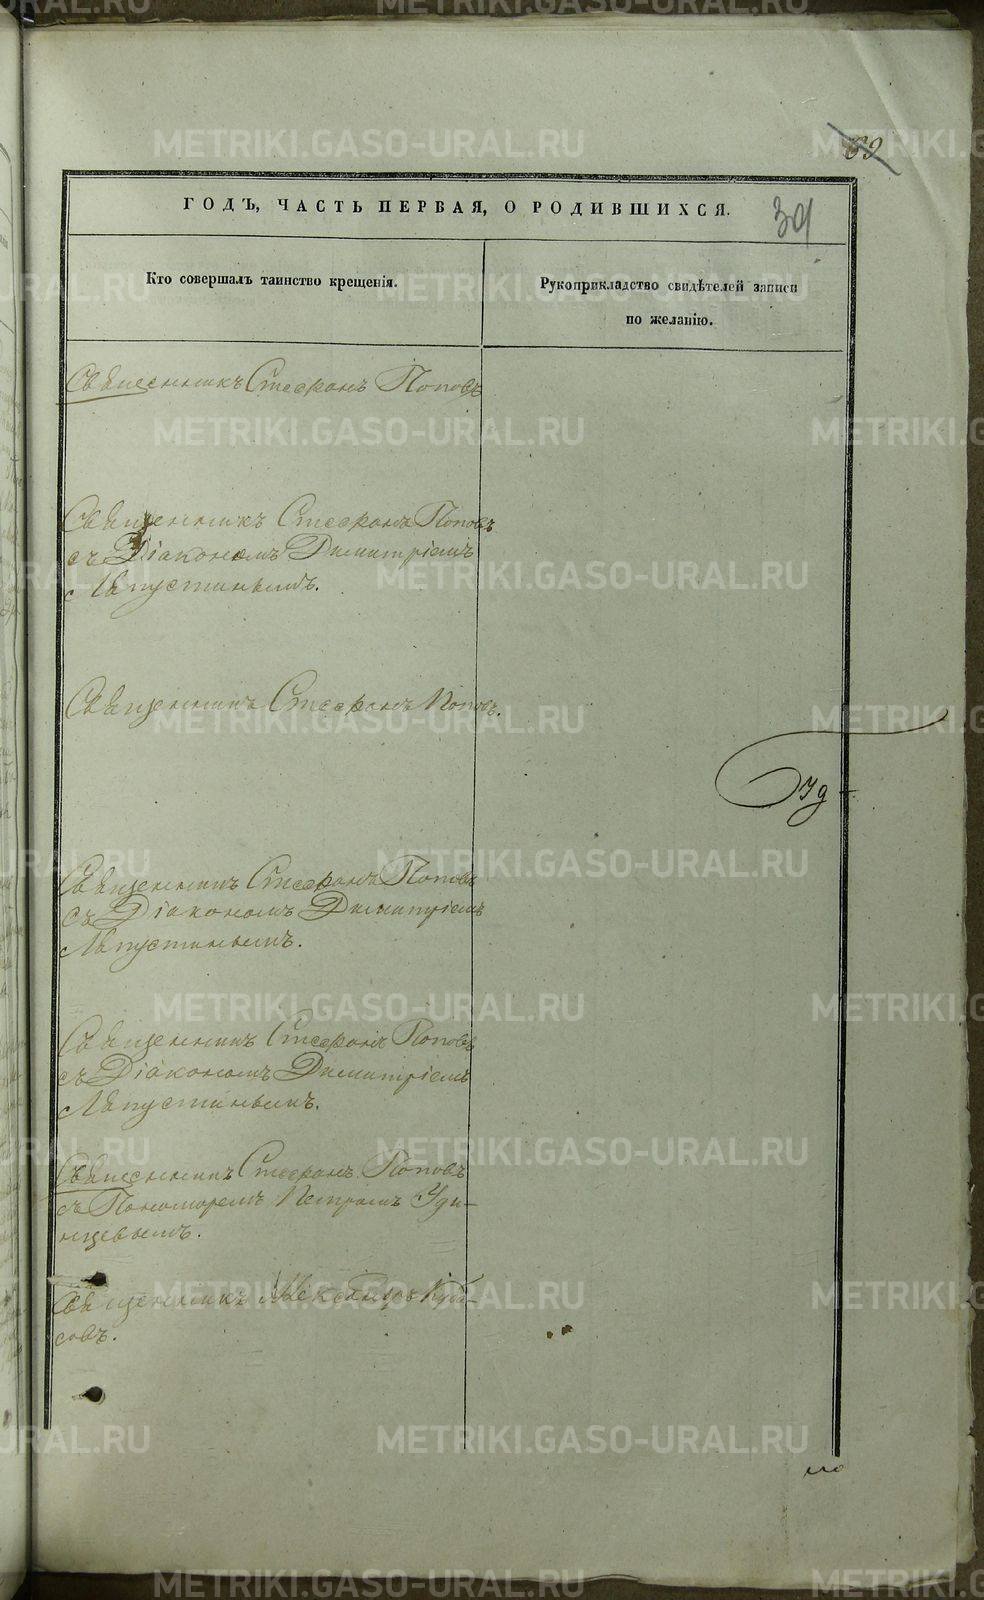 39
ГОДЪ, ЧАСТЬ ПЕРВАЯ, О РОДИВШИХСЯ.
Кто совершалъ таинство крещенія.
Рукоприкладство свидѣтелей записи
по желанію.
Священникъ Стефанъ Поповъ
Священникъ Стефанъ Поповъ
съ Діакономъ Димитріемъ
Лѣпустинымъ.
Священникъ Стефанъ Поповъ.
Священникъ Стефанъ Поповъ
съ Діакономъ Димитріемъ
Лѣпустинымъ.
Священникъ Стефанъ Поповъ
съ Діакономъ Димитріемъ
Лѣпустинымъ.
Священникъ Стефанъ Поповъ
съ Пономоремъ Петромъ Уди-
нцевымъ.
Священникъ Александръ
совъ.
METRIKI.GASO-URAL.RU